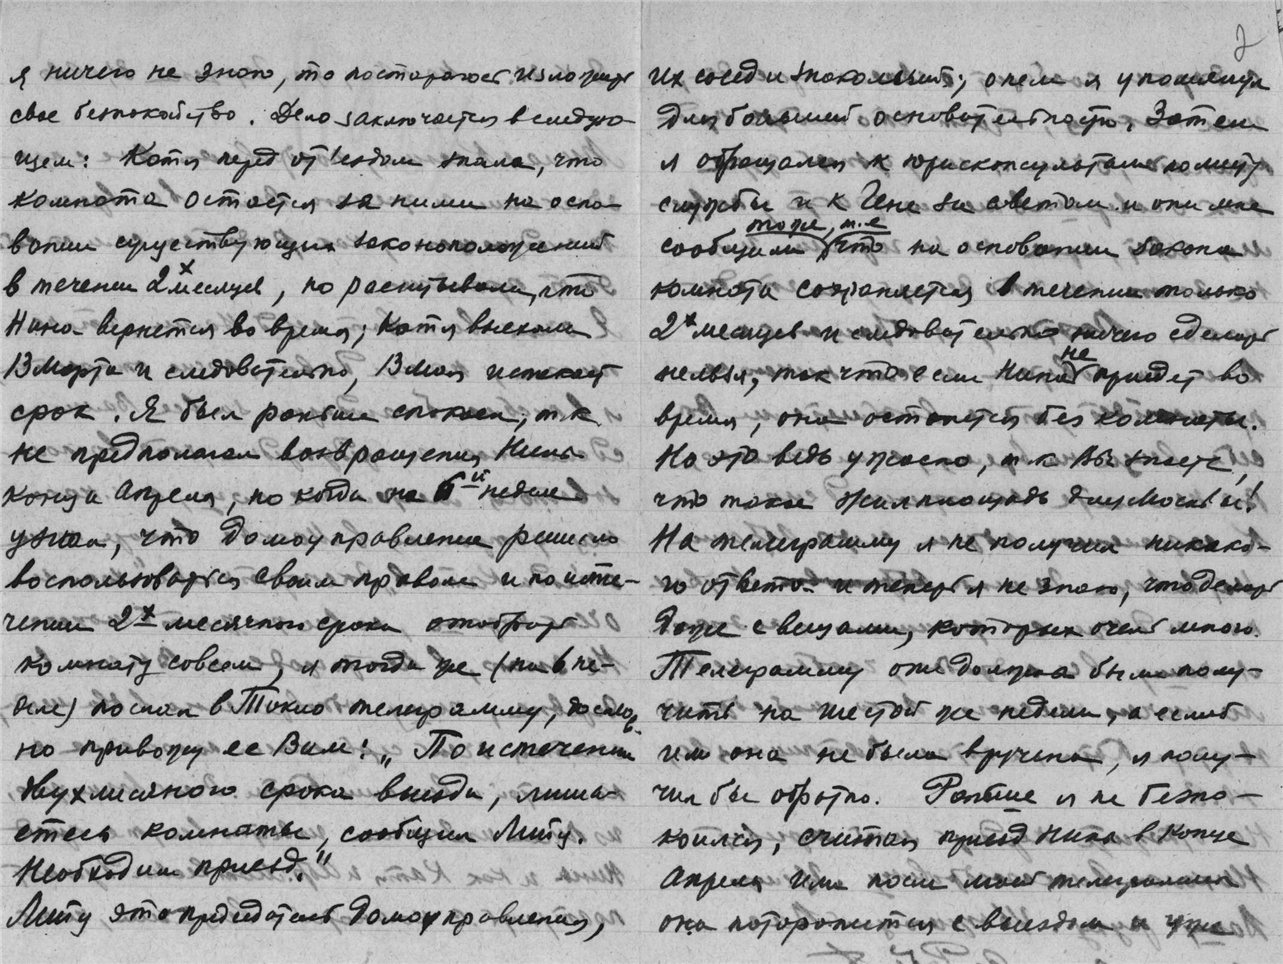 я ничего не знаю, то постараюсь изложить
свое беспокойство. Дело заключается в следую-
щем: Катя перед от'ездом знала, что
комната остается за ними на осно-
вании существующих законоположений
в течении 2х месяцев, но расчитывали, что
Нина вернется во время; Катя выехала
13 марта и следовательно, 13 мая истекает
срок. Я был раньше спокоен, т.к
не предполагал возвращения Нины
конца апреля, но когда на 6й неделе
узнал, что домоуправление решило
воспользоваться своим правом и по исте-
чении 2х месячного срока отобрать
комнату совсем, я тогда же (на 6 не-
деле) послал в Токио телеграмму, дослов-
но привожу ее Вам: „По истечении
двухмесячного срока выезда, лиша-
етесь комнаты, сообщил Литу.
Необходим приезд."
Литу это председатель домоуправления,
2
их сосед и знакомый; о нем я упомянул
для большей основательности. Затем
я обращался к юрисконсультам по месту
службы и к Гене за советом и они мне
тоже, т.е
сообщили что на основании закона
комната сохраняется в течении только
2х месяцев и следовательно ничего сделать
не
нельзя, так что если Нина приедет во
время, она останется без комнаты.
Но это ведь ужасно, т к Вы знаете,
что такое жилплощадь для Москвы!
На телеграмму я не получил никако-
го ответа и теперь я не знаю, что делать
даже с вещами, которых очень много.
Телеграмму они должны были полу-
чить на шестой же неделе, а еслиб
им она не была вручена, я полу-
чил бы обратно. Раньше я не беспо-
коился, считая приезд Нины в конце
Апреля или после моей телеграммы
она поторопится с выездом и уже